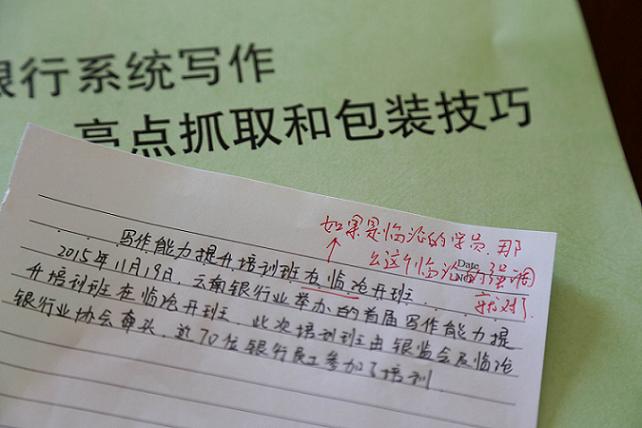 银行系统写作
亮点抓取和包装技巧
如果是临沧的学员,那
么这个临沧的强调
就对了
Date
写作能力提升培训班在临沧开班
2015年11月19日,云南银行业举办的首届写作能力提
升培训班在临沧开班.此次培训班由银监会及临沧
银行业协会牵头,近70位银行员工参加了培训.